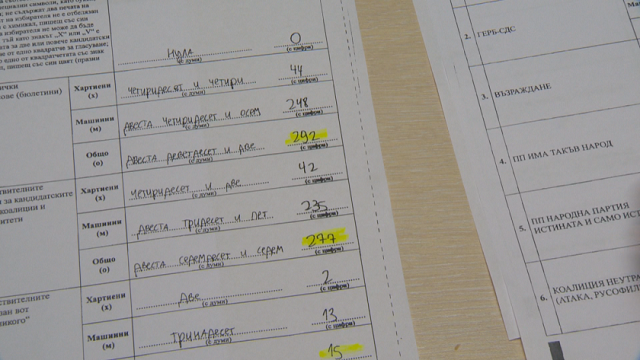 Нула 0
(с думи) (с цифри)
Хартиени
(х)
четиридесет и четири 44
(с думи) (с цифри)
Машинни
(м)
двеста четиридесет и осем 248
(с думи) (с цифри)
Общо
(о)
двеста деветдесет и две 292
(с думи) (с цифри)
Хартиени
(х)
четиридесет и две 42
(с думи) (с цифри)
Машинни
(м)
двеста тридесет и пет 235
(с думи) (с цифри)
Общо
(о)
двеста седемдесет и седем 277
(с думи) (с цифри)
Хартиени
(х)
две 2
(с думи) (с цифри)
Машинни
(м)
тринадесет 13
(с думи) (с цифри)
15
(бюлетини)
за кандидатските
коалиции и
2. ГЕРБ-СДС
3. ВЪЗРАЖДАНЕ
4. ПП ИМА ТАКЪВ НАРОД
5. ПП НАРОДНА ПАРТИЯ
ИСТИНАТА И САМО
6. КОАЛИЦИЯ
(АТАКА,